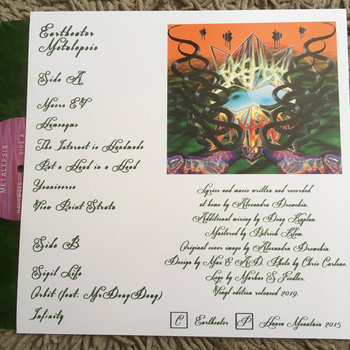 METALEPSIS
SIDE A
Eartheater
Metalepsis
Side A
Macro EV
Homonyms
The Internet is Handmade
Put a Head in a Head
Youniverse
View Point Strata
Side B
Sigil Life
Orbit (feat. MrDougDoug)
Infinity
Lyrics and music written and recorded
at home by Alexandra Drewchin.
Additional mixing by Doug Kaplan.
Mastered by Patrick Klem.
Original cover image by Alexandra Drewchin.
Design by Max E A.D. Photo by Chris
Logo by Markus S. Fiedler.
Vinyl edition released 2019.
C Eartheater P Hausu Mountain 2015